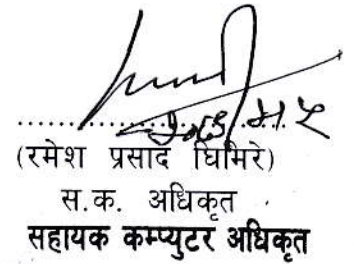 (रमेश प्रसाद घिमिरे)
स.क. अधिकृत
सहायक कम्प्युटर अधिकृत